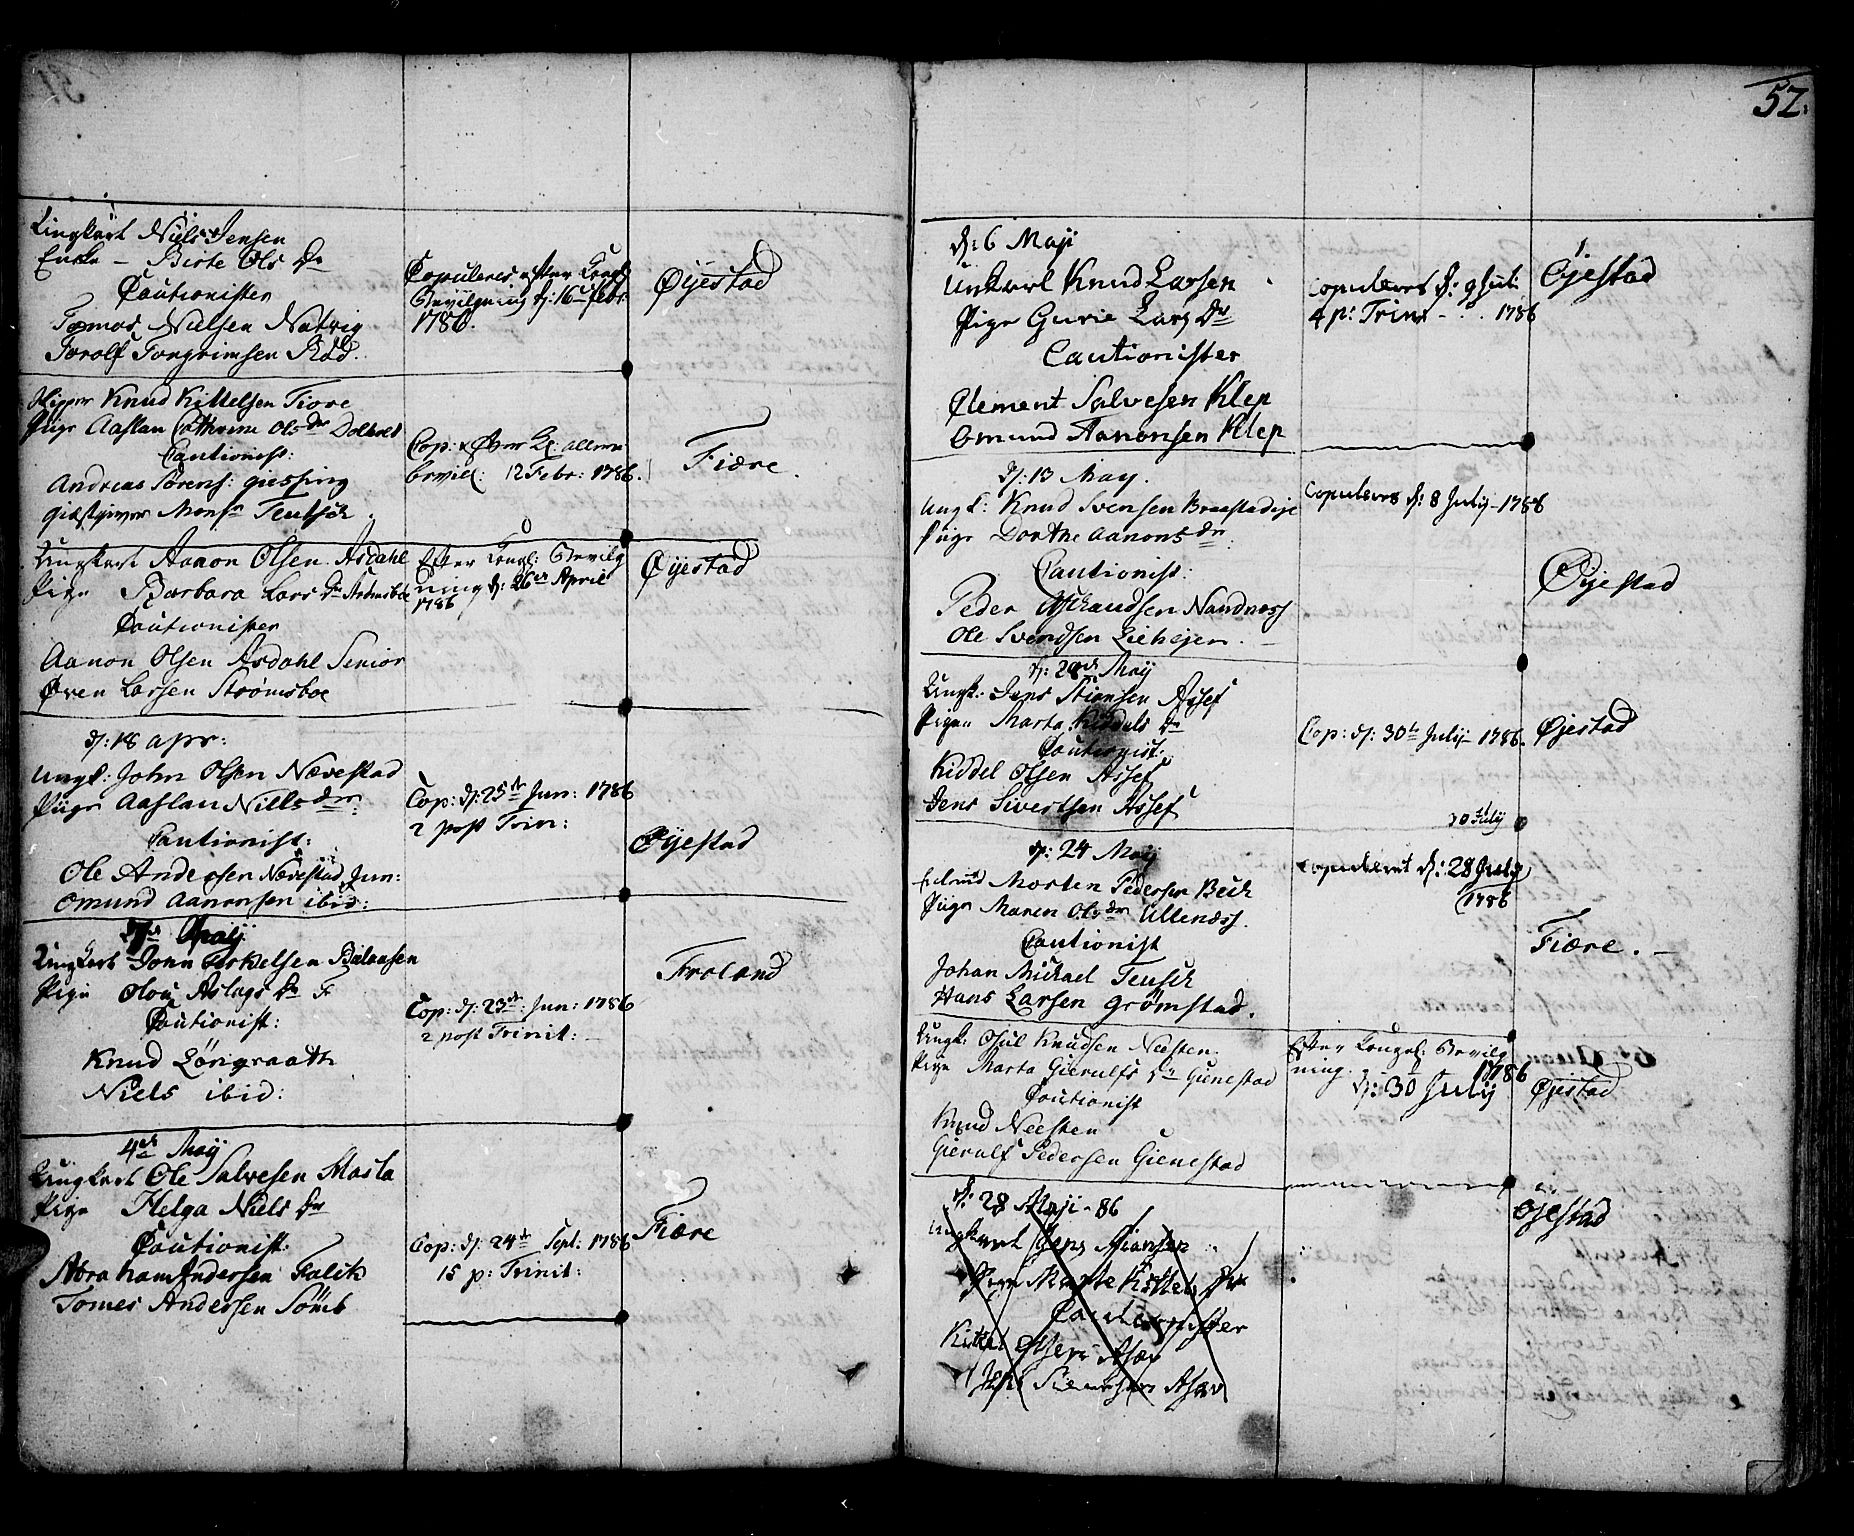 Ungkarl Niels Jensen
Enke - Birte Ols Dr
Cautionister
Tomas Nielsen Natvig
Torolf Torgrimsen Rdd.
Copuleres efter Kongl
Bevilgning d: 16 febr:
1786.
Øyestad
Skipper Knud Kittelsen Fiære
Pige Aaslau Cathrine Olsdtr Dolholt
Cautionist:
Andreas Sørens: giessing
giæstgiver Monsr Teutsch.
Cop: efter Kl. allern
bevill: 12 Febr: 1786.
Fiære.
Ungkarl Aanon Olsen Asdahl
Pige Barbara Lars Dr Strømsboe
Cautionister
Aanon Olsen Asdahl Senior
Øven Larsen Strømsboe
Efter Kongl: Bevilg
ning d: 26de April
1786
Øyestad
d: 18 apr:
Ungk: John Olsen Nævestad
Pige Aaslau Nielsdtr
Cautionist:
Ole Andersen Nævestad Jun:
Omund Aanonsen ibid:
Cop: d: 25de Jun: 1786
2 post Trin:
Øyestad
Maij
Ungkarl John Terkelsen
Pige Olou Aslags Dr F
Cautionist:
Knud Longraath
Niels ibid:
Cop: d: 23de Jun: 1786
2 post Trinit: -
Froland
4de Maij
Ungkarl Ole Salvesen Stasla
Pige Helga Niels Dr
Cautionist:
Abraham Andersen Falch
Tomes Andersen Sømb
Cop: d: 24de Sept: 1786
15 p: Trinit:
Fiære
52.
d: 6 Maji
Unkarl Knud Larsen
Pige Gurie Lars Dr
Cautionister
Clement Salvesen Klep
Omund Aanonsen Klep
Copuleres d: 9 Juli
4 p: Trin - . . 1786
Øjestad
d: 13 May.
Ungk: Knud Svensen Braastadvje
Pige Dorthe Aanonsdr.
Cautionist:
Peder Nandness
Ole Svendsen Liehejen. -
Copuleres d: 8 July - 1786
Øijestad
d: 20de May
Ungk: Jens Stiansen Assef
Pigen Marta Kiddels Dr
Cautionist:
Kiddel Olsen Assef
Jens Sivertsen Assef
Cop: d: 30te July 1786.
Øjestad
30 July
d: 24 May
Morten Pedersen Bech
Pige Maren Olsdtr Ullenæss.
Cautionist
Johan Michael Teusch
Hans Larsen Grømstad.
Copuleret d: 28 July
1786
Fiære. -
Ungk: Osul Knudsen Neesten.
Pige Marta Gierulfs Dr Gienestad
Cautionist
Knud Neesten
Gierulf Pedersen Gienestad
Efter Kongel: Bevilg
ning. 1786
d: 30 July
Øjestad
d: 28 Maji - 86
Ungkarl Jens Stiansen
Pige Marte Kittels Dr
Cautionister
Kittel Olsen Asæv
Jens Siversen Asæv
Øjestad